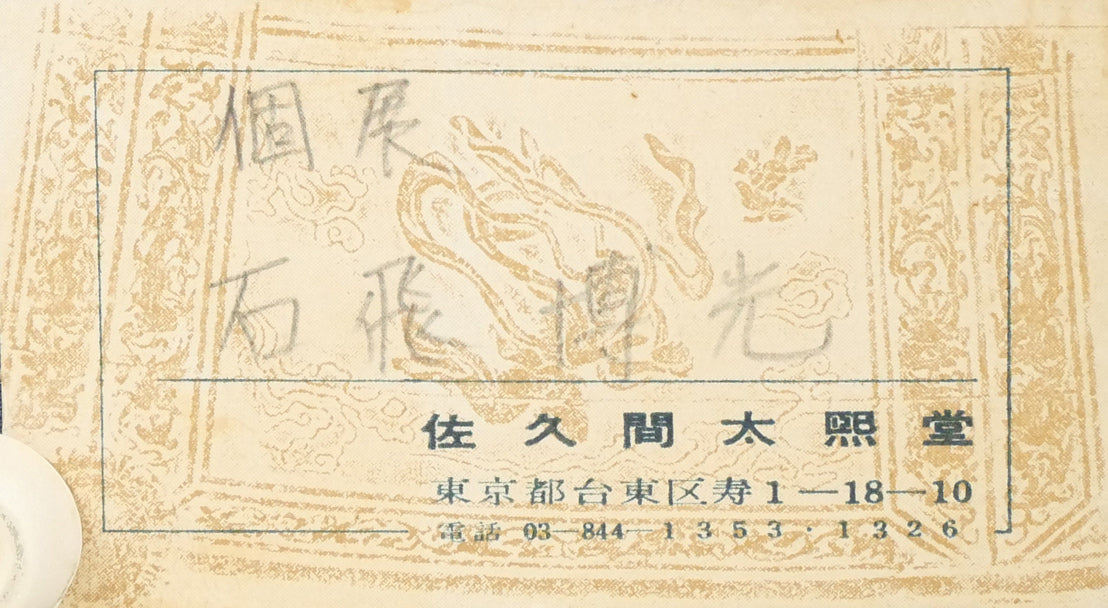 個展
石飛 博光
佐久間太熙堂
東京都台東区寿1—18—10
電話 03—844—1353・1326